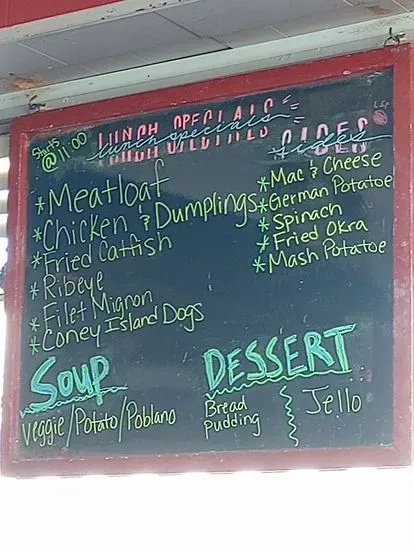 Starts
@ 11:00
LUNCH SPECIALS
lunch specials
* Meatloaf
* Chicken & Dumplings
* Fried Catfish
* Ribeye
* Filet Mignon
* Coney Island Dogs
SIDES
sides
* Mac & Cheese
* German Potatoe
* Spinach
* Fried Okra
* Mash Potatoe
SOUP
Veggie/Potato/Poblano
DESSERT
Bread
Pudding
Jello